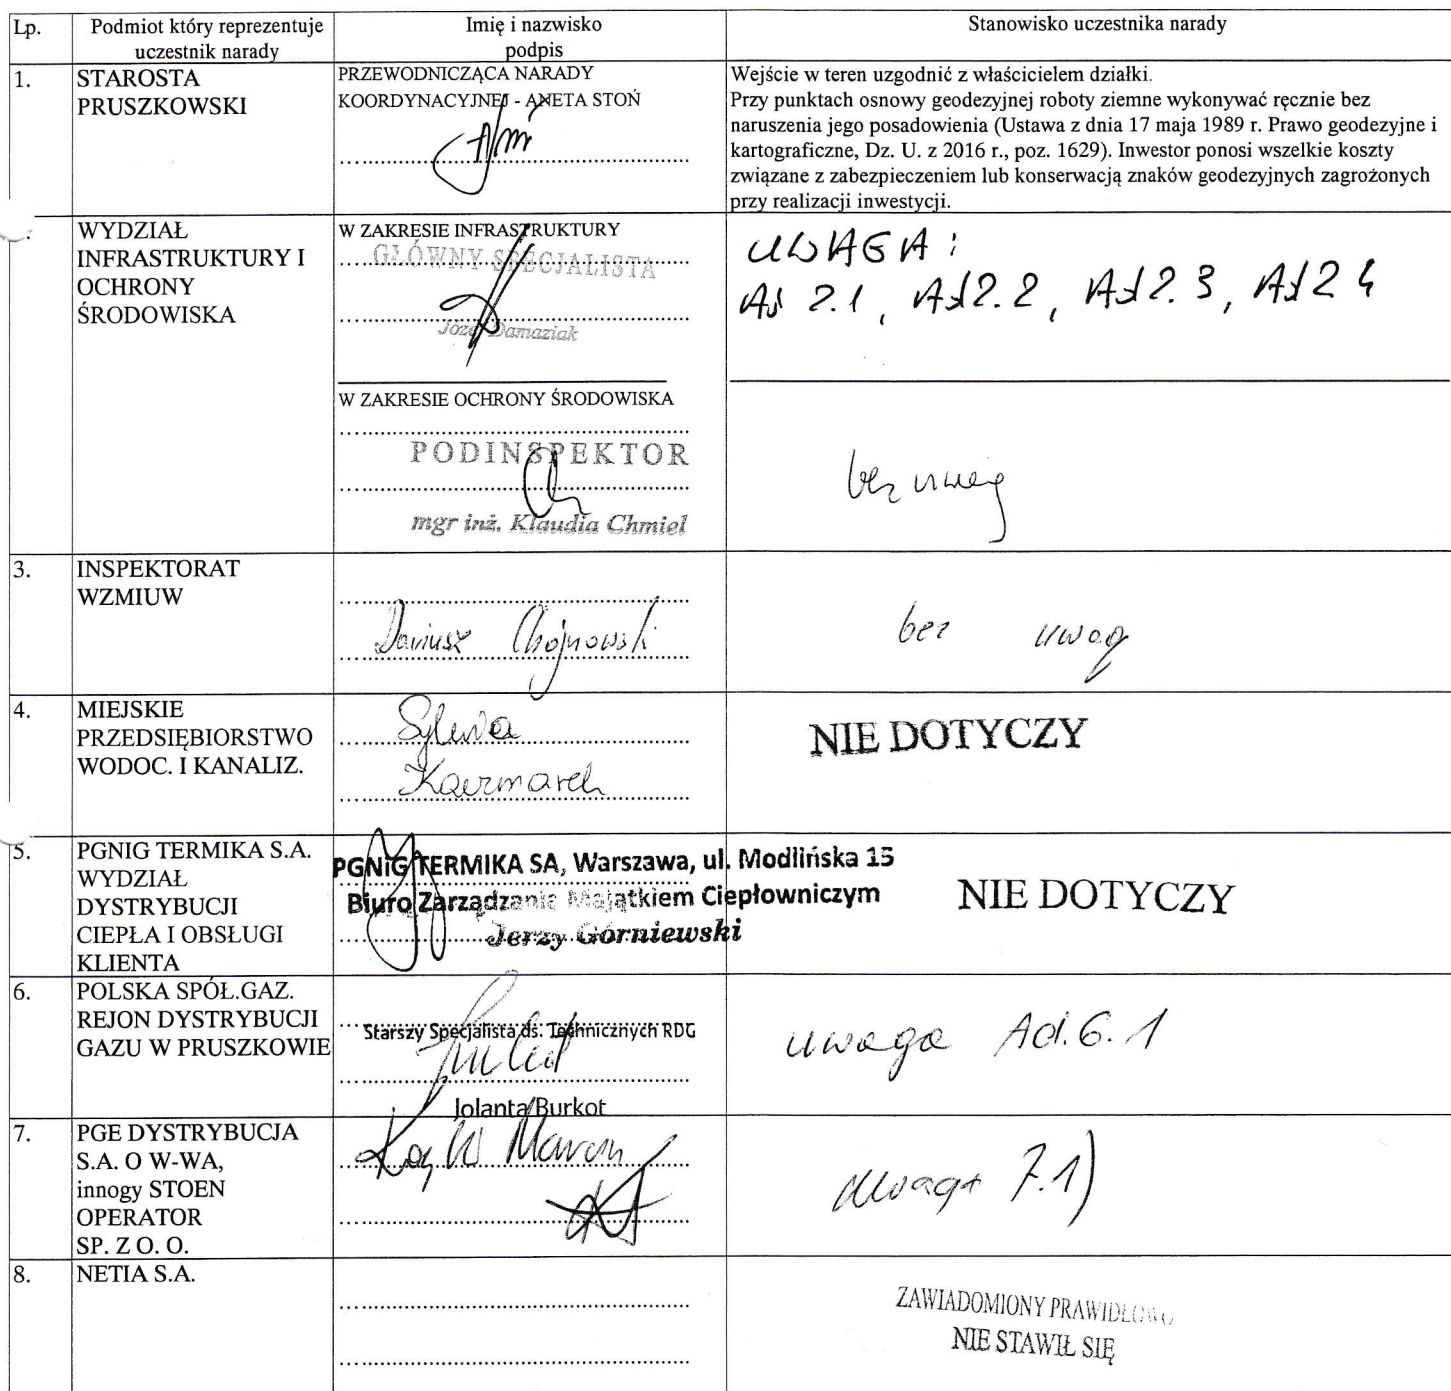 Lp.
Podmiot który reprezentuje
uczestnik narady
Imię i nazwisko
podpis
Stanowisko uczestnika narady
1.
STAROSTA
PRUSZKOWSKI
PRZEWODNICZĄCA NARADY
KOORDYNACYJNEJ - ANETA STOŃ
Wejście w teren uzgodnić z właścicielem działki.
Przy punktach osnowy geodezyjnej roboty ziemne wykonywać ręcznie bez
naruszenia jego posadowienia (Ustawa z dnia 17 maja 1989 r. Prawo geodezyjne i
kartograficzne, Dz. U. z 2016 r., poz. 1629). Inwestor ponosi wszelkie koszty
związane z zabezpieczeniem lub konserwacją znaków geodezyjnych zagrożonych
przy realizacji inwestycji.
WYDZIAŁ
INFRASTRUKTURY I
OCHRONY
ŚRODOWISKA
W ZAKRESIE INFRASTRUKTURY
GŁÓWNY SPECJALISTA
Józef Damaziak
UWAGA :
Ad 2.1, Ad 2.2, Ad 2.3, Ad 2 4
W ZAKRESIE OCHRONY ŚRODOWISKA
PODINSPEKTOR
mgr inż. Klaudia Chmiel
bez uwag
3.
INSPEKTORAT
WZMIUW
Dariusz Chojnowski
bez uwag
4.
MIEJSKIE
PRZEDSIĘBIORSTWO
WODOC. I KANALIZ.
Sylwia
Kaczmarek
NIE DOTYCZY
5.
PGNIG TERMIKA S.A.
WYDZIAŁ
DYSTRYBUCJI
CIEPŁA I OBSŁUGI
KLIENTA
PGNiG TERMIKA SA, Warszawa, ul. Modlińska 15
Biuro Zarządzania Majątkiem Ciepłowniczym
Jerzy Górniewski
NIE DOTYCZY
6.
POLSKA SPÓŁ.GAZ.
REJON DYSTRYBUCJI
GAZU W PRUSZKOWIE
Starszy Specjalista ds. Technicznych RDG
Jolanta Burkot
uwaga Ad. 6. 1
7.
PGE DYSTRYBUCJA
S.A. O W-WA,
innogy STOEN
OPERATOR
SP. Z O. O.
Marcin
uwaga 7.1)
8.
NETIA S.A.
ZAWIADOMIONY PRAWIDŁOWO
NIE STAWIŁ SIĘ